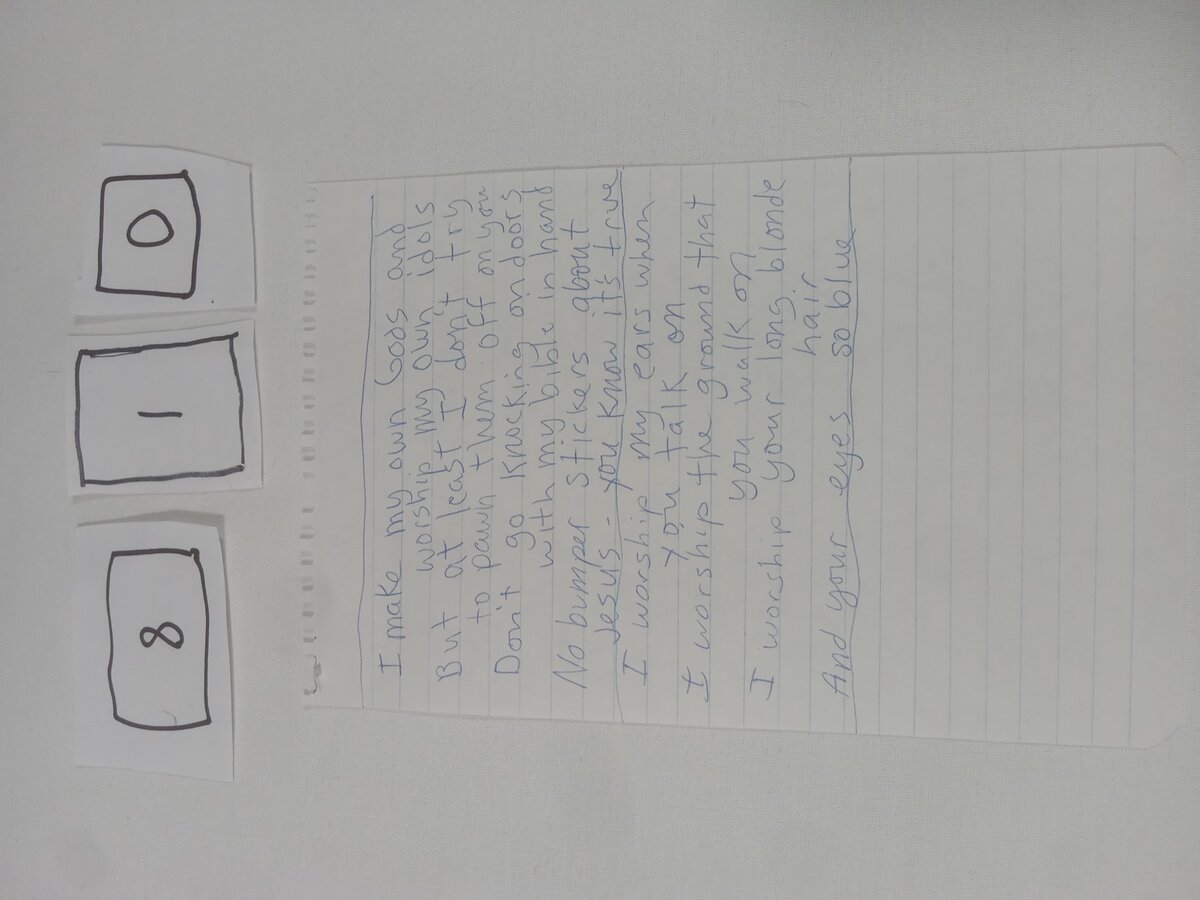 8 1 0
I make my own Gods and
worship my own idols
But at least I don't try
to pawn them off on you
Don't go knocking on doors
with my bible in hand
No bumper stickers about
Jesus - you know it's true
I worship my ears when
you talk on
I worship the ground that
you walk on
I worship your long blonde
hair
And your eyes so blue